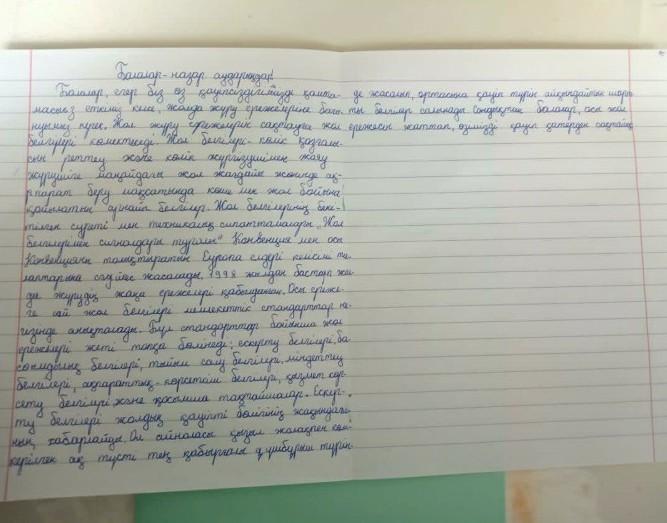 Балалар - назар аударыңдар!
Балалар, егер біз өз қауіпсіздігімізді қамта-
масыз еткіміз келсе, жолда жүру ережелеріне бағы-
нуымыз керек. Жол жүру ережелерін сақтауға жол
белгілері көмектеседі. Жол белгілері - көлік қозғалы-
сын реттеу және көлік жүргізушімен жаяу
жүргіншіге маңайдағы жол жағдайы жөнінде ақ-
парат беру мақсатында көше мен жол бойына
қойылатын арнайы белгілер. Жол белгілерінің бекі-
тілген суреті мен техникалық сипаттамалары „Жол
белгілерімен сигналдары туралы" Конвенция мен осы
Конвенцияны толықтыратын Европа елдері келісімі та-
лаптарына сәйкес жасалады, 1998 жылдан бастап жол-
да жүрудің жаңа ережелері қабылданған. Осы ереже-
ге сай жол белгілері мемлекеттік стандарттар не-
гізінде анықталады. Бұл стандарттар бойынша жол
ережелері жеті топқа бөлінеді: ескерту белгілері, ба-
сымдылық белгілері, тыйым салу белгілері, міндеттеу
белгілері, ақпараттық - көрсеткіш белгілері, қызмет көр-
сету белгілері және қосымша тақтайшалар. Ескер-
ту белгілері жолдың қауіпті бөлігінің жақындағы-
нын хабарлайды. Ол айналасы қызыл жолақпен көм-
керілген ақ түсті тең қабырғалы үшбұрыш түрін-
де жасалып, ортасына қауіп түрін айқындайтын шарт-
ты белгілер салынады. Сондықтан балалар, осы жол
ережесін жаттап, өзімізді қауіп қатерден сақтайық